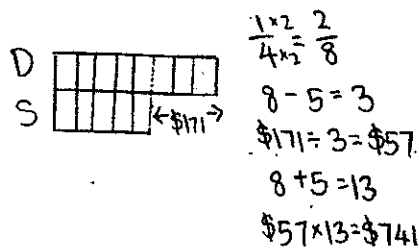 D
S
←$171→
1×2/4×2 = 2/8
8 - 5 = 3
$171 ÷ 3 = $57
8 + 5 = 13
$57 × 13 = $741